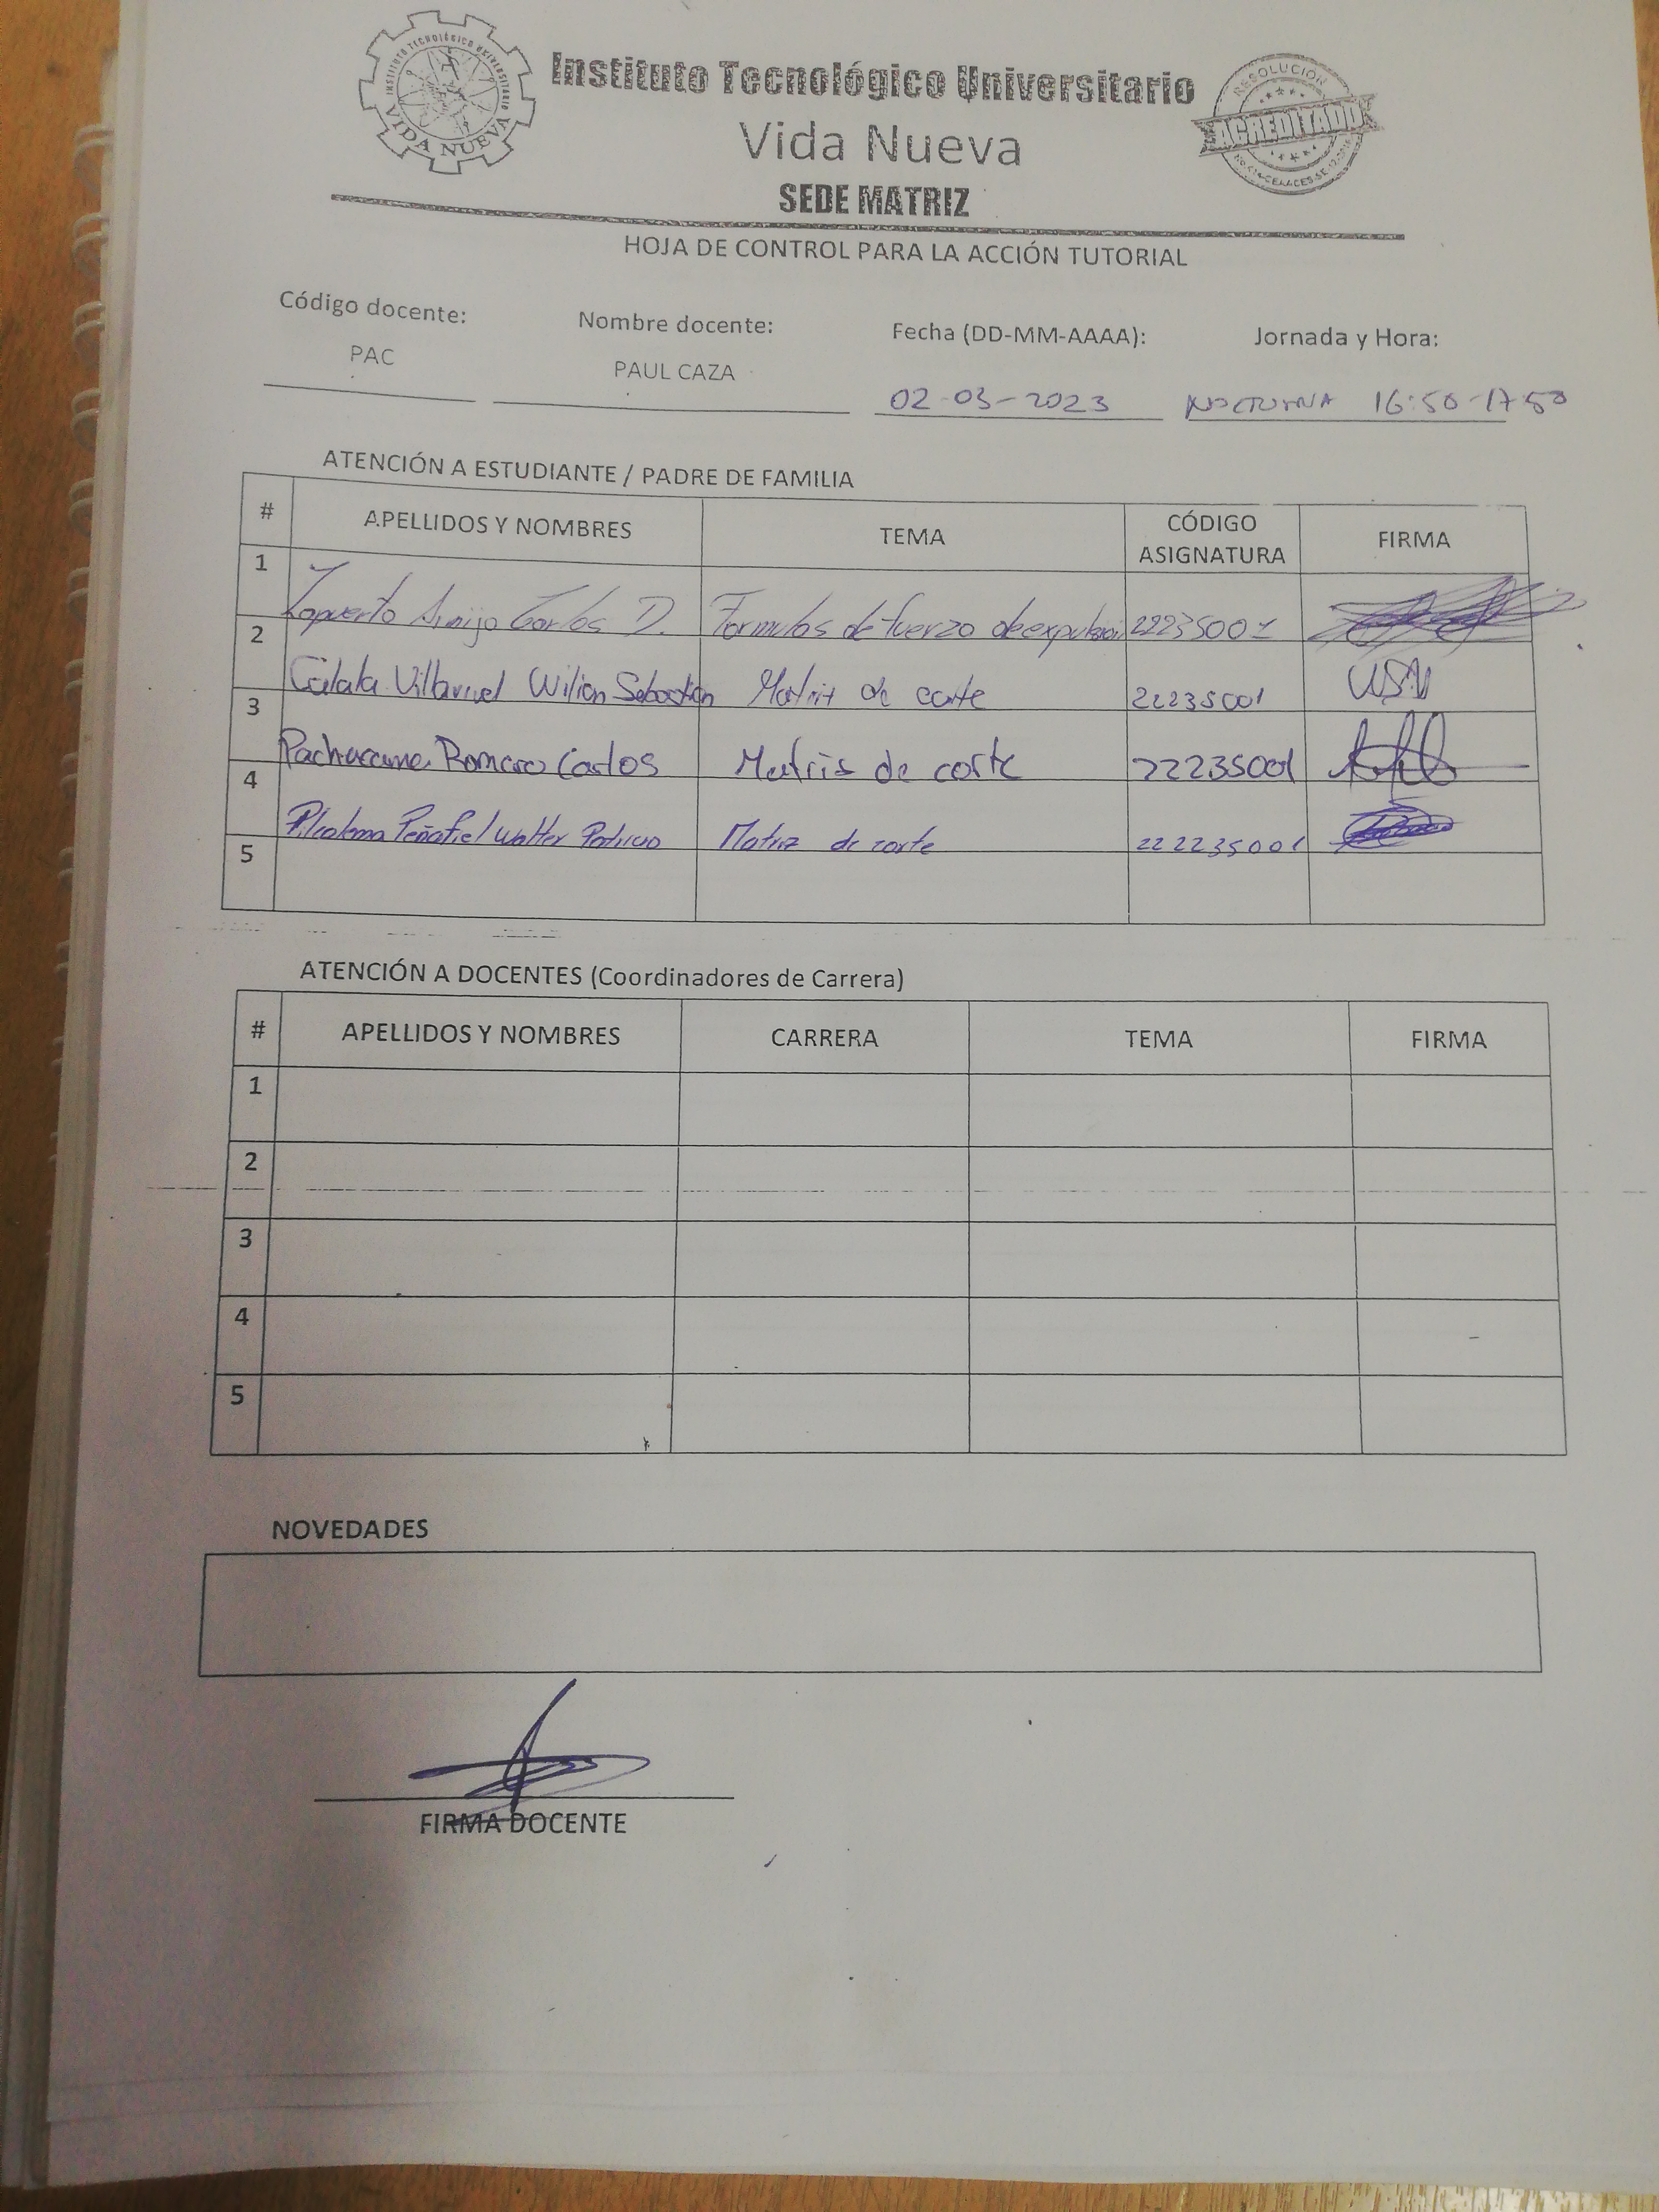 INSTITUTO TECNOLÓGICO UNIVERSITARIO
VIDA NUEVA
Instituto Tecnológico Universitario
Vida Nueva
SEDE MATRIZ
RESOLUCIÓN
ACREDITADO
HOJA DE CONTROL PARA LA ACCIÓN TUTORIAL
Código docente: Nombre docente: Fecha (DD-MM-AAAA): Jornada y Hora:
PAC PAUL CAZA 02-03-2023 NOCTURNA 16:50-17:50
ATENCIÓN A ESTUDIANTE / PADRE DE FAMILIA
# APELLIDOS Y NOMBRES TEMA CÓDIGO ASIGNATURA FIRMA
1 Carlos D. Formulas de fuerza de expulsion 2223S001
2 Villarruel Wilian Sebastian Matriz de corte 2223S001
3 Pachacama Romero Carlos Matris de corte 2223S001
4 Peñafiel Walter Patricio Matriz de corte 22223S001
5
ATENCIÓN A DOCENTES (Coordinadores de Carrera)
# APELLIDOS Y NOMBRES CARRERA TEMA FIRMA
1
2
3
4
5
NOVEDADES
FIRMA DOCENTE